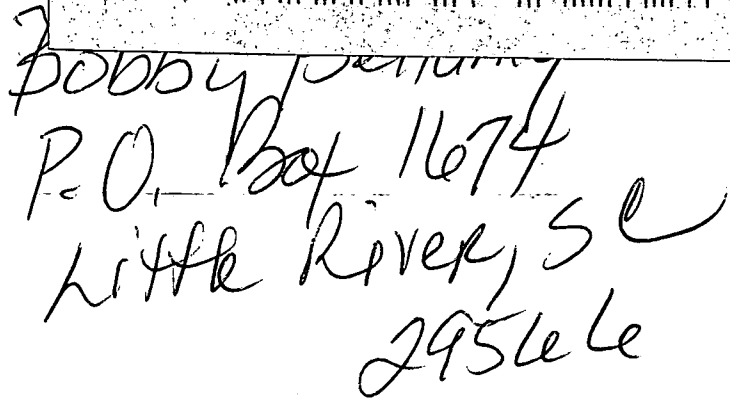 Bobby
P.O. Box 1674
Little River, SC
29566